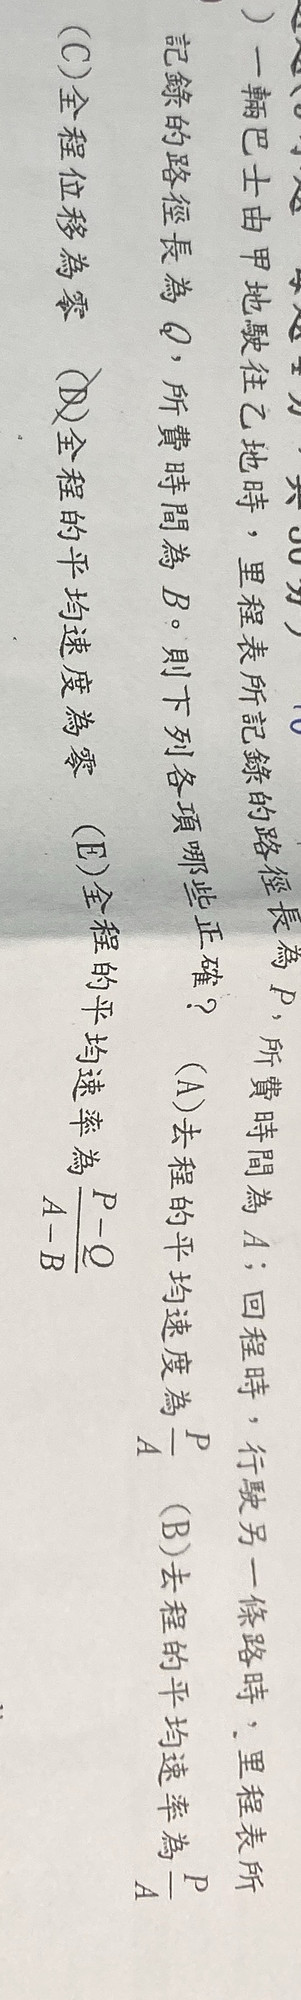 )一輛巴士由甲地駛往乙地時，里程表所記錄的路徑長為 P，所費時間為 A；回程時，行駛另一條路時，里程表所
記錄的路徑長為 Q，所費時間為 B。則下列各項哪些正確？ (A)去程的平均速度為 P/A (B)去程的平均速率為 P/A
(C)全程位移為零 (D)全程的平均速度為零 (E)全程的平均速率為 P-Q/A-B